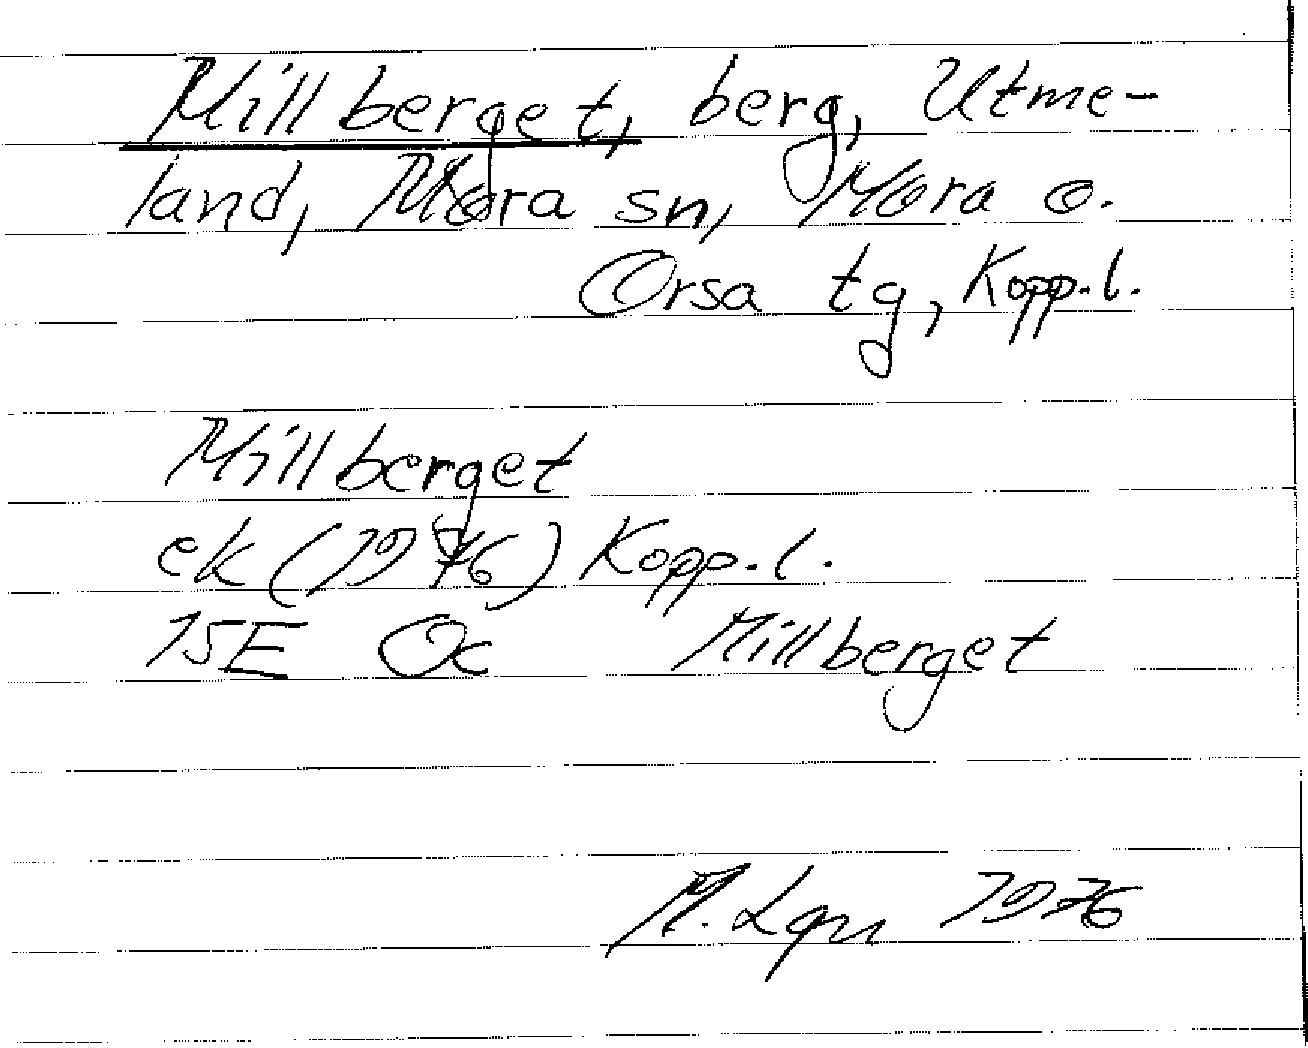 Millberget, berg, Utme-
land, Mora sn, Mora o.
Orsa tg, Kopp.l.
Millberget
ek (1976) Kopp.l.
15E Oc Millberget
M. Lgn 1976